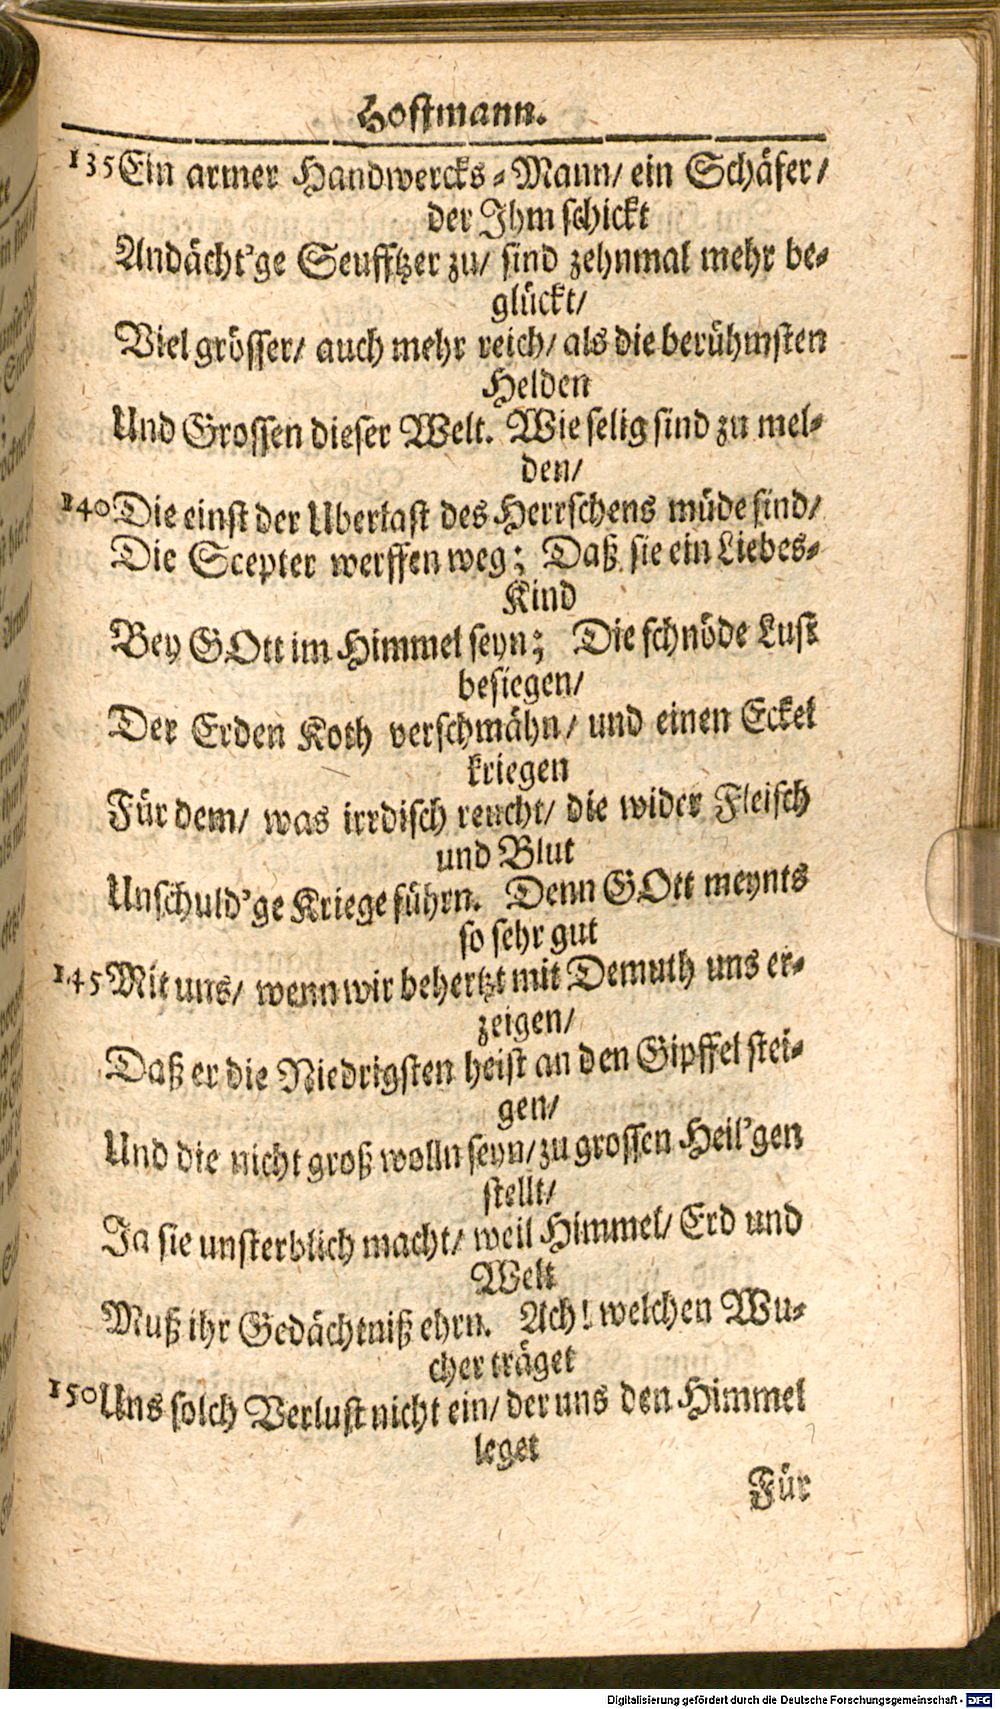 Hoffmann.
135 Ein armer Handwercks-Mann/ ein Schäfer/
der Jhm schickt
Andächt'ge Seufftzer zu/ sind zehnmal mehr be-
glückt/
Viel grösser/ auch mehr reich/ als die berühmsten
Helden
Und Grossen dieser Welt. Wie selig sind zu mel-
den/
140 Die einst der Uberlast des Herrschens müde sind/
Die Scepter werffen weg; Daß sie ein Liebes-
Kind
Bey GOtt im Himmel seyn; Die schnöde Lust
besiegen/
Der Erden Koth verschmähn/ und einen Eckel
kriegen
Für dem/ was irrdisch reucht/ die wider Fleisch
und Blut
Unschuld'ge Kriege führn. Denn GOtt meynts
so sehr gut
145 Mit uns/ wenn wir behertzt mit Demuth uns er-
zeigen/
Daß er die Niedrigsten heist an den Gipffel stei-
gen/
Und die nicht groß wolln seyn/ zu grossen Heil'gen
stellt/
Ja sie unsterblich macht/ weil Himmel/ Erd und
Welt
Muß ihr Gedächtniß ehrn. Ach! welchen Wu-
cher träget
150 Uns solch Verlust nicht ein/ der uns den Himmel
leget
Für
Digitalisierung gefördert durch die Deutsche Forschungsgemeinschaft - DFG